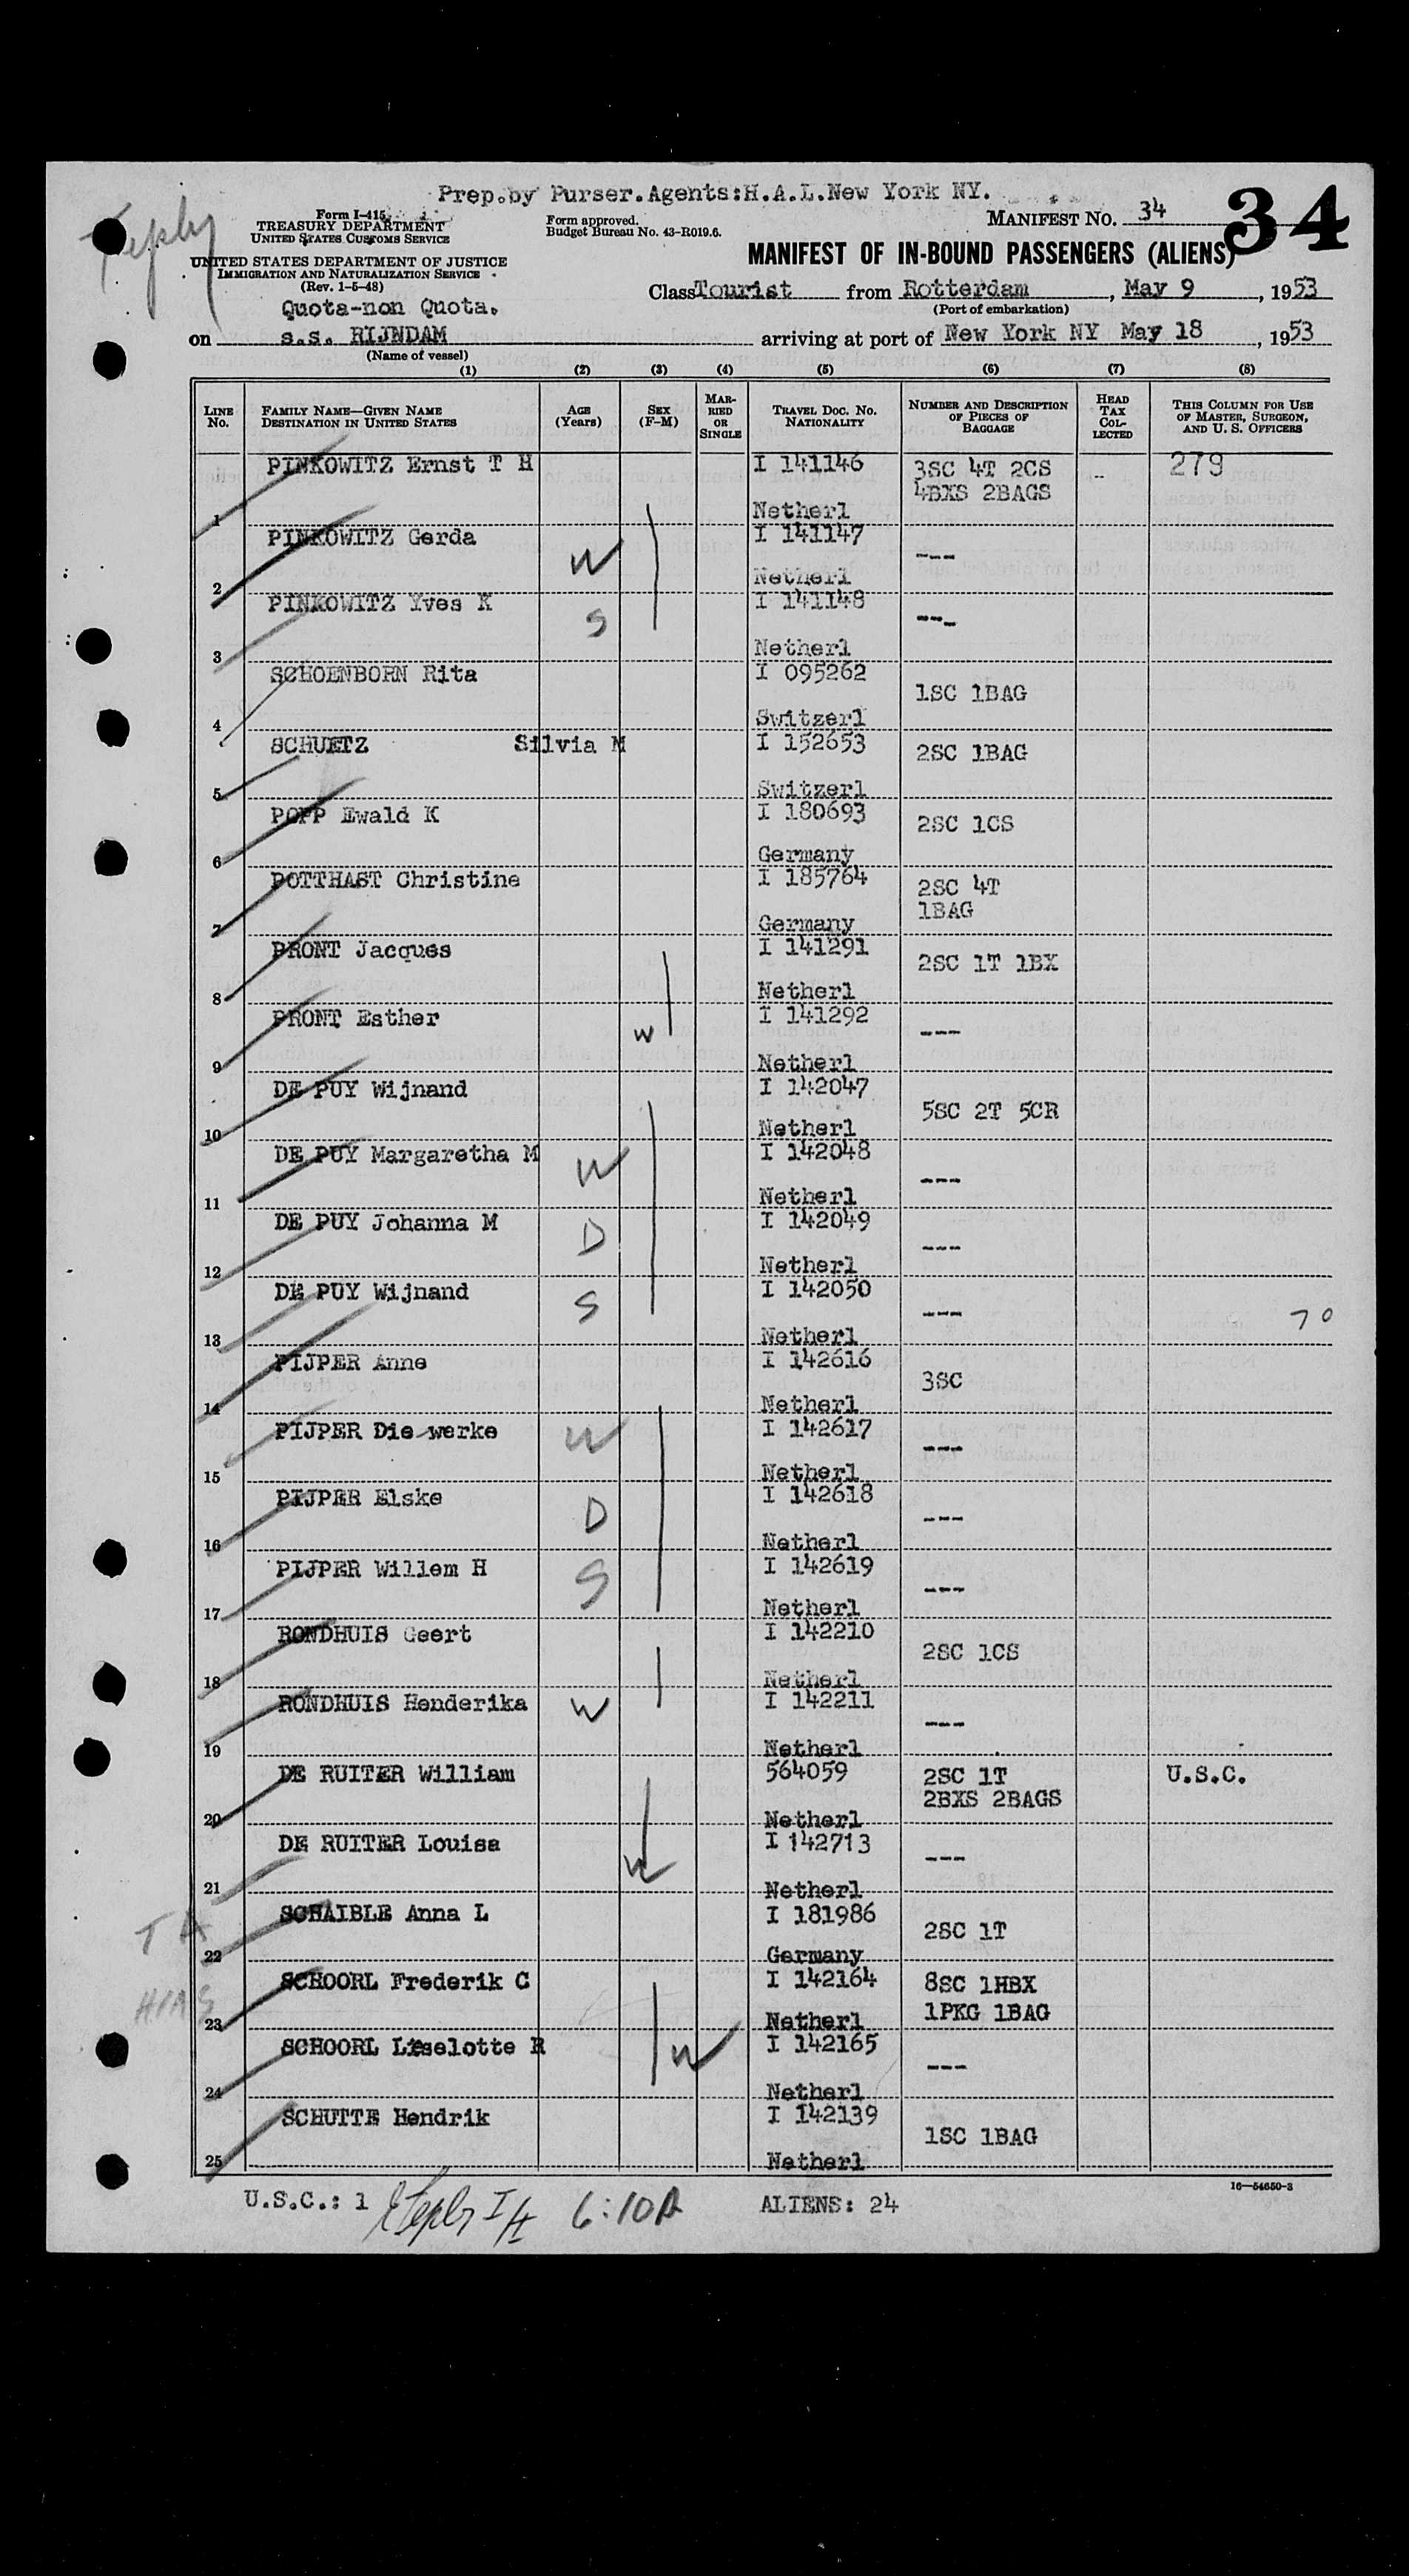 Prep.by Purser.Agents:H.A.L.New York NY.
Form I-415
TREASURY DEPARTMENT
UNITED STATES CUSTOMS SERVICE
Form approved.
Budget Bureau No. 43-R019.6.
MANIFEST NO. 34
34
UNITED STATES DEPARTMENT OF JUSTICE
IMMIGRATION AND NATURALIZATION SERVICE
(Rev. 1-5-48)
MANIFEST OF IN-BOUND PASSENGERS (ALIENS)
Quota-non Quota.
Class Tourist from Rotterdam, May 9, 1953
(Port of embarkation)
on s.s. RIJNDAM arriving at port of New York NY May 18, 1953
(Name of vessel)
(1) (2) (3) (4) (5) (6) (7) (8)
LINE No. FAMILY NAME—GIVEN NAME DESTINATION IN UNITED STATES AGE (Years) SEX (F-M) MARRIED OR SINGLE TRAVEL DOC. NO. NATIONALITY NUMBER AND DESCRIPTION OF PIECES OF BAGGAGE HEAD TAX COLLECTED THIS COLUMN FOR USE OF MASTER, SURGEON, AND U. S. OFFICERS
PINKOWITZ Ernst T H I 141146 3SC 4T 2CS -- 279
4BXS 2BAGS
1 Netherl
PINKOWITZ Gerda W I 141147 ---
2 Netherl
PINKOWITZ Yves K S I 141148 ---
3 Netherl
SCHOENBORN Rita I 095262 1SC 1BAG
4 Switzerl
SCHUETZ Silvia M I 152653 2SC 1BAG
5 Switzerl
POPP Ewald K I 180693 2SC 1CS
6 Germany
POTTHAST Christine I 185764 2SC 4T
1BAG
7 Germany
PRONT Jacques I 141291 2SC 1T 1BX
8 Netherl
PRONT Esther W I 141292 ---
9 Netherl
DE PUY Wijnand I 142047 5SC 2T 5CR
10 Netherl
DE PUY Margaretha M W I 142048 ---
11 Netherl
DE PUY Johanna M D I 142049 ---
12 Netherl
DE PUY Wijnand S I 142050 --- 70
13 Netherl
PIJPER Anne I 142616 3SC
14 Netherl
PIJPER Die-werke W I 142617 ---
15 Netherl
PIJPER Elske D I 142618 ---
16 Netherl
PIJPER Willem H S I 142619 ---
17 Netherl
RONDHUIS Geert I 142210 2SC 1CS
18 Netherl
RONDHUIS Henderika W I 142211 ---
19 Netherl
DE RUITER William 564059 2SC 1T U.S.C.
2BXS 2BAGS
20 Netherl
DE RUITER Louisa W I 142713 ---
21 Netherl
SCHAIBLE Anna L I 181986 2SC 1T
T A
22 Germany
SCHOORL Frederik C I 142164 8SC 1HBX
HIAS 1PKG 1BAG
23 Netherl
SCHOORL Lieselotte R W I 142165 ---
24 Netherl
SCHUTTE Hendrik I 142139 1SC 1BAG
25 Netherl
16—54650-3
U.S.C.: 1 6:10A ALIENS: 24